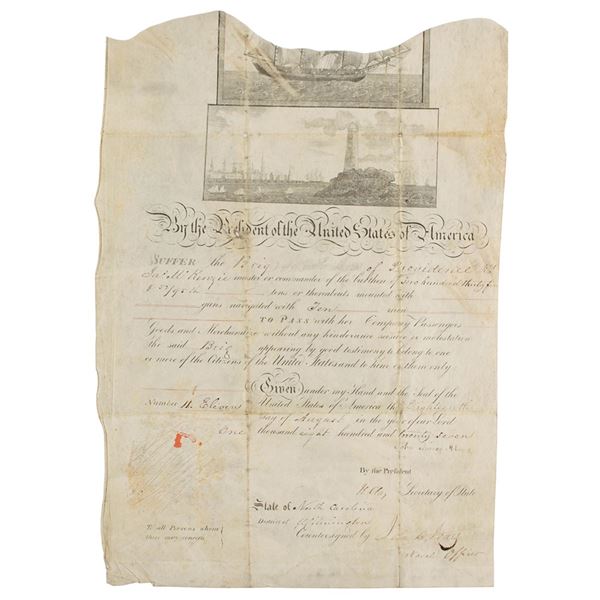 By the President of the United States of America
SUFFER the Brig of Providence
McKenzie master or commander of the burthen of Two hundred thirty
tons or thereabouts mounted with
guns navigated with Ten men
TO PASS with her Company Passengers
Goods and Merchandize without any hinderance seizure or molestation
the said Brig appearing by good testimony to belong to one
or more of the Citizens of the United States and to him or them only.
Given under my Hand and the Seal of the
Number 11. Eleven United States of America the Eighteenth
day of August in the year of our Lord
One thousand eight hundred and twenty seven
By the President
H. Clay Secretary of State
State of North Carolina
District Wilmington
Countersigned by
To all Persons whom
these may concern
Naval Officer